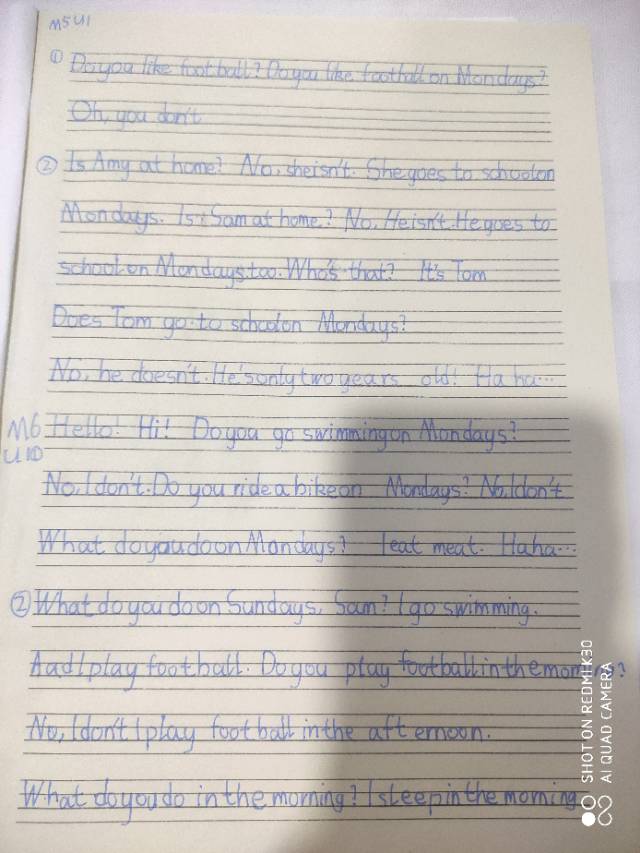 M5U1
① Do you like football? Do you like football on Mondays?
Oh, you don't
② Is Amy at home? No, she isn't. She goes to school on
Mondays. Is Sam at home? No, He isn't. He goes to
school on Mondays too. Who's that? It's Tom
Does Tom go to school on Mondays?
No, he doesn't. He's only two years old! Ha ha...
M6 Hello! Hi! Do you go swimming on Mondays?
U10
No, I don't. Do you ride a bike on Mondays? No, I don't
What do you do on Mondays? I eat meat. Haha...
② What do you do on Sundays, Sam? I go swimming.
Aad I play football. Do you play football in the morning?
No, I don't I play football in the afternoon.
What do you do in the morning? I sleep in the morning
SHOT ON REDMI K30
AI QUAD CAMERA